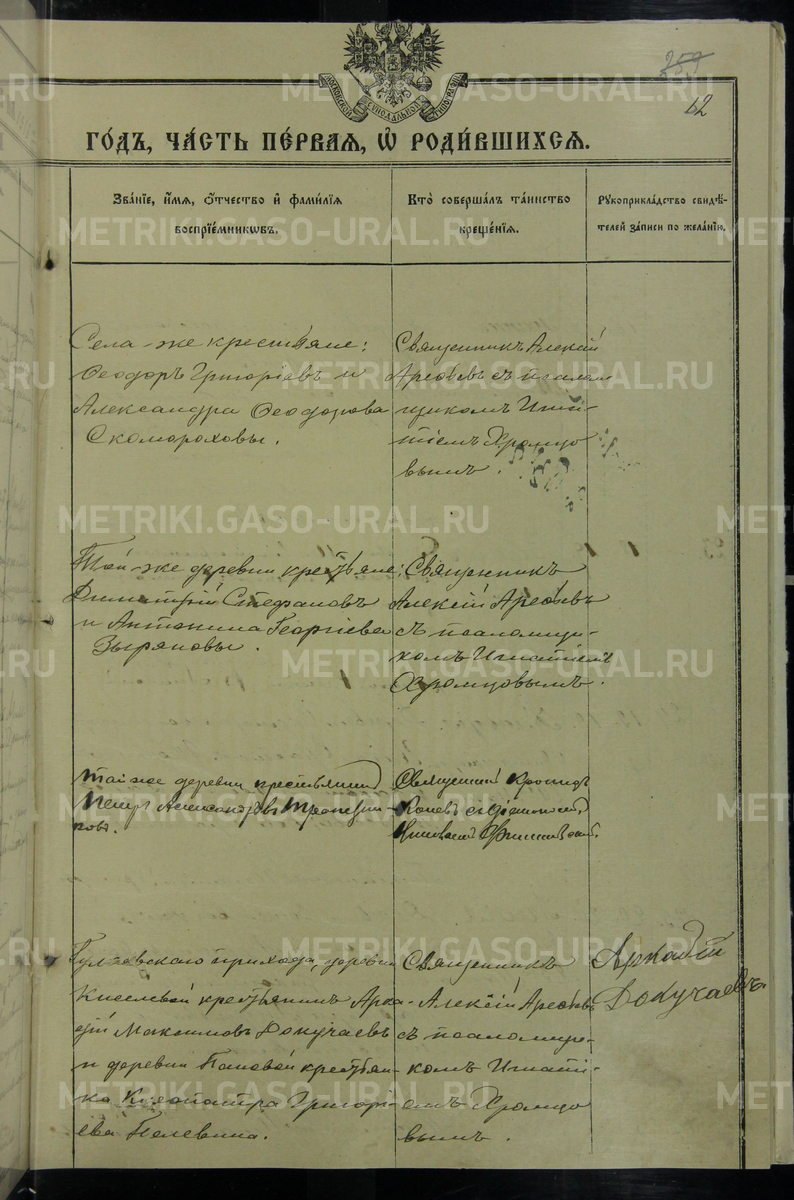 359
62
МОСКОВСКОЙ СѴНОДАЛЬНОЙ ТИПОГРАФІИ
ГОДЪ, ЧАСТЬ ПЕРВАЯ, Ѡ РОДИВШИХСЯ.
Званіе, имя, отчество и фамилія
воспріемниковъ.
Кто совершалъ таинство
крещенія.
Рукоприкладство свидѣ-
телей записи по желанію.
Села-же крестьяне:
Ѳеодоръ Григоріевъ и
Александра Ѳеодорова
Скомороховы.
Священникъ Алексій
Арефьевъ съ псалом-
щикомъ Игна-
тіемъ Хромцо
вымъ.
Той-же деревни крестьяне:
Димитрій Стефановъ
и Антонина Георгіева
Зыряновы.
Священникъ
Алексій Арефьевъ
съ псаломщи-
комъ Игнатіемъ
Хромцовымъ.
Той же деревни крестьянинъ
Петръ Александровъ
Священникъ
Гулевского прихода, деревни
Киселевой крестьянинъ Арка-
дій Максимовъ Докучаевъ
и деревни Пановой крестьян-
ка Клеопатра Григорі-
ева Пелевина.
Священникъ
Алексій Арефьевъ
съ псаломщи-
комъ Игнаті-
емъ Хромцо
вымъ.
Аркадій
Докучаевъ
METRIKI.GASO-URAL.RU